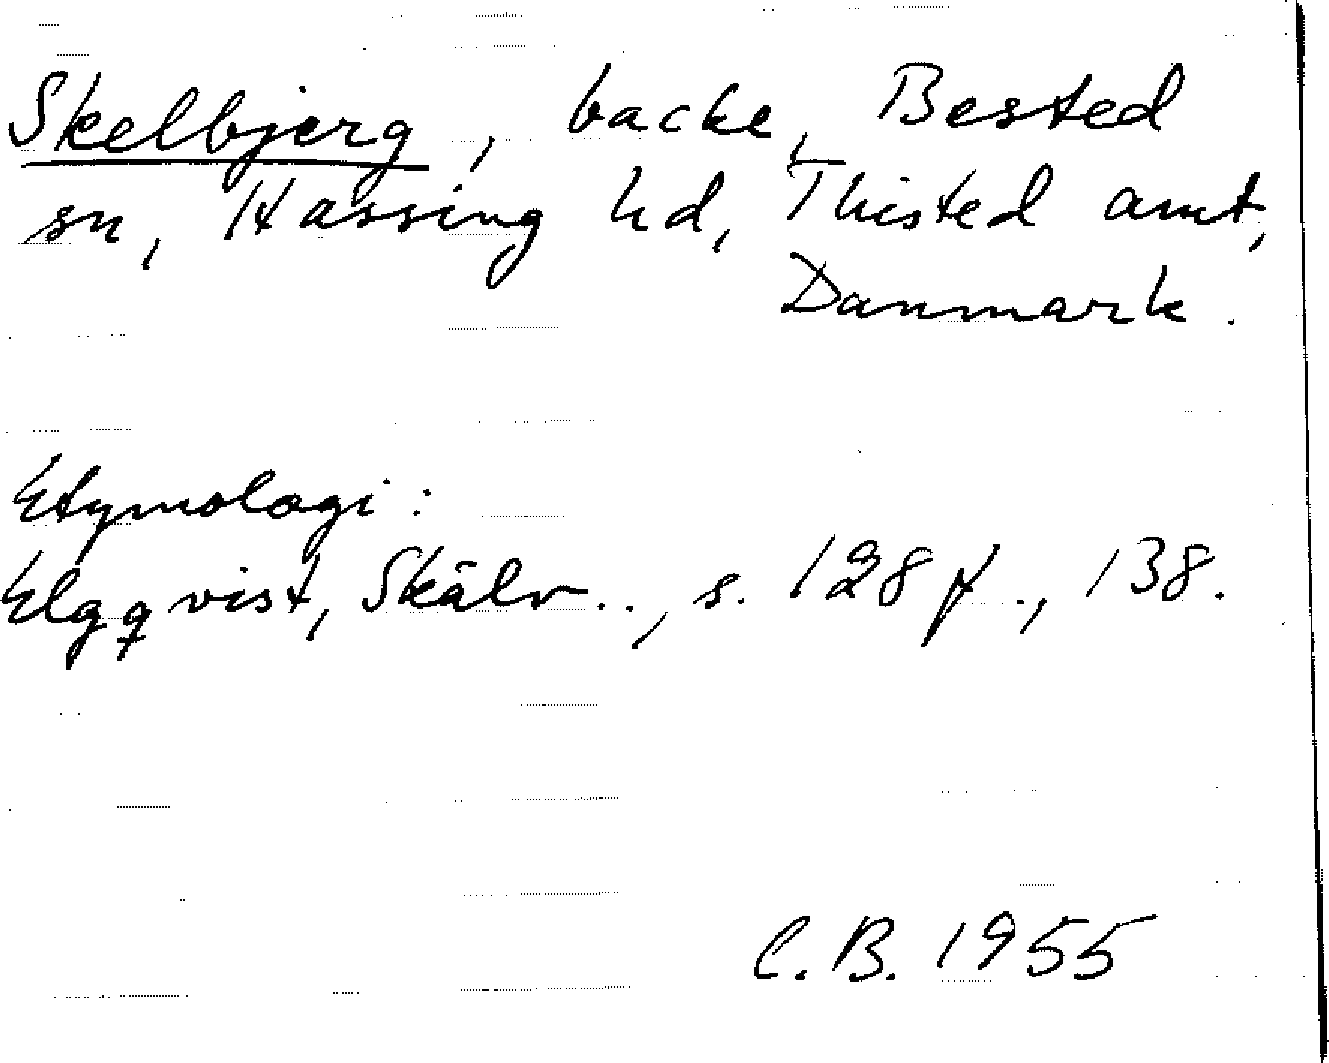 Skelbjerg, backe, Bested
sn, Hassing hd, Thisted amt,
Danmark.
Etymologi:
Elgqvist, Skälv.., s. 128 f., 138.
C.B. 1955